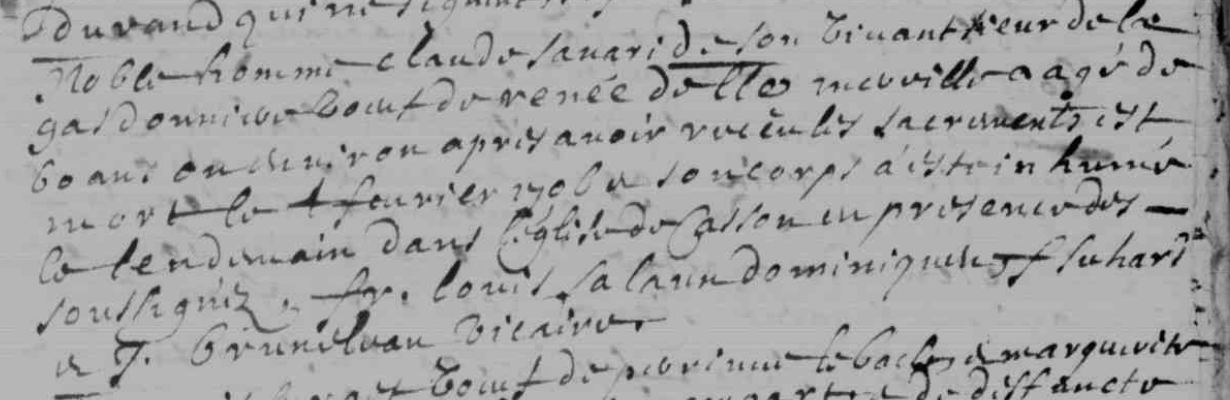 durand qui ne signent
Noble homme claude savari de son vivant sieur de la
gasdonniere voeuf de renée delle meroville aagé de
60 ans ou environ apres avoir receu les sacrements est
mort le 4 fevrier 1706 & son corps a esté inhumé
le lendemain dans l'église de Casson en presence des
soussignéz. fr. louis salaun dominiquen f suhard
& J. bruneleau vicaire
voeuf de perinne & marguerite
de deffuncte